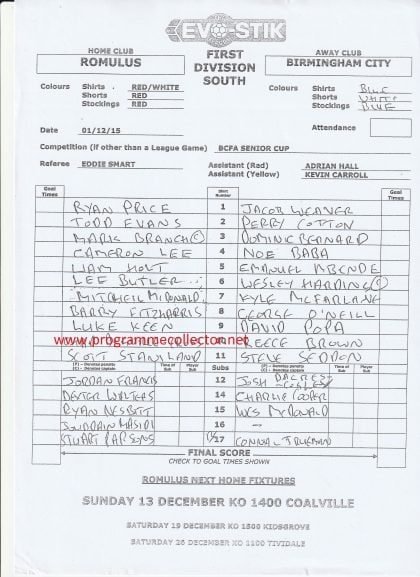 EVO-STIK
HOME CLUB FIRST AWAY CLUB
ROMULUS DIVISION BIRMINGHAM CITY
SOUTH
Colours Shirts . RED/WHITE Colours Shirts BLUE
Shorts RED Shorts WHITE
Stockings RED Stockings BLUE
Date 01/12/15 Attendance
Competition (if other than a League Game) BCFA SENIOR CUP
Referee EDDIE SMART Assistant (Red) ADRIAN HALL
Assistant (Yellow) KEVIN CARROLL
Goal Times Shirt Number Goal Times
RYAN PRICE 1 JACOB WEAVER
TODD EVANS 2 PERRY COTTON
MARK BRANCH (C) 3 DOMINIC BERNARD
CAMERON LEE 4 NOE BABA
LIAM HOLT 5 EMANUEL
LEE BUTLER 6 WESLEY HARDING (C)
MITCHELL MCDONALD 7 KYLE MCFARLANE
BARRY FITZHARRIS 8 GEORGE O'NEILL
LUKE KEEN 9 DAVID POPA
www.programmecollector.net REECE BROWN
SCOTT STANILAND 11 STEVE SEDDON
(P) - Denotes penalty (C) - Denotes captain Time of Sub Player Sub Subs (P) - Denotes penalty (C) - Denotes captain Time of Sub Player Sub
JORDAN FRANCIS 12 JOSH DACRES-COGLEY
DEXTER WALTERS 14 CHARLIE COOPER
RYAN NESBITT 15 WES MCDONALD
JOURDAN MASIDI 16 -
STUART PARSONS 17 CONNAL TRUEMAN
FINAL SCORE
CHECK TO GOAL TIMES SHOWN
ROMULUS NEXT HOME FIXTURES
SUNDAY 13 DECEMBER KO 1400 COALVILLE
SATURDAY 19 DECEMBER KO 1500 KIDSGROVE
SATURDAY 26 DECEMBER KO 1100 TIVIDALE